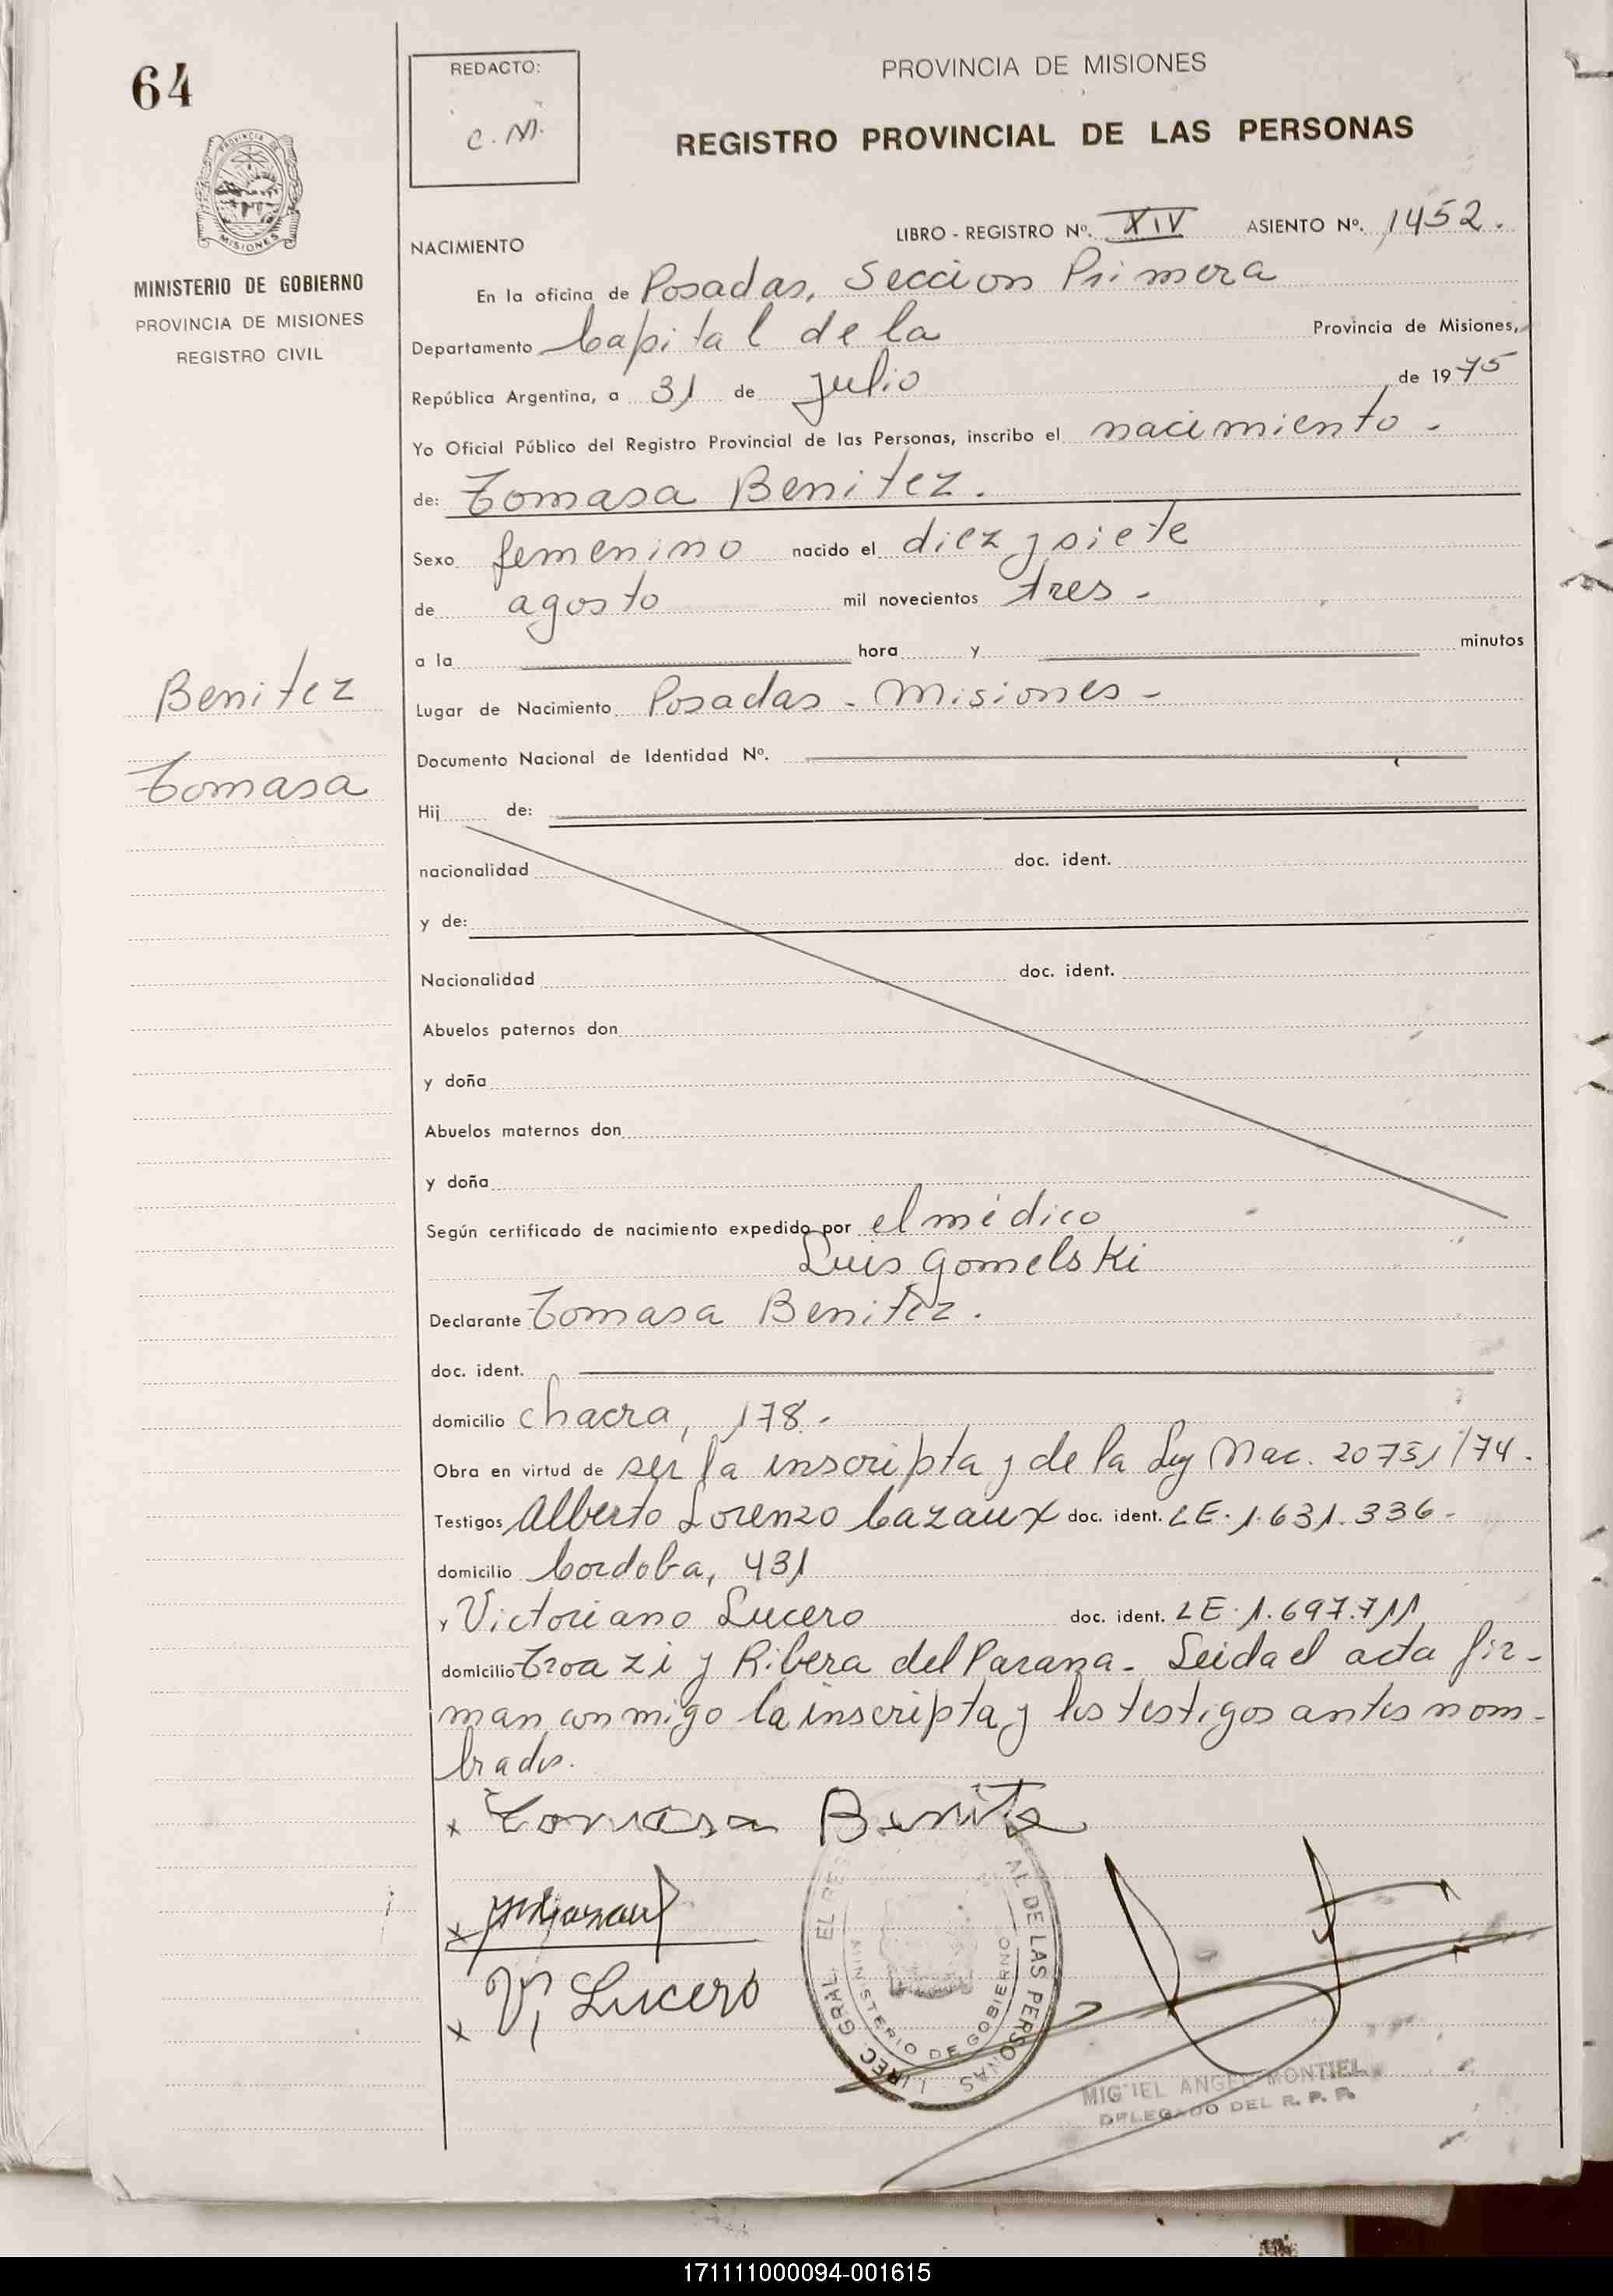 64
REDACTO:
C.M.
PROVINCIA DE MISIONES
REGISTRO PROVINCIAL DE LAS PERSONAS
PROVINCIA DE
MISIONES
MINISTERIO DE GOBIERNO
PROVINCIA DE MISIONES
REGISTRO CIVIL
LIBRO - REGISTRO Nº. XIV ASIENTO Nº. 1452.
NACIMIENTO
En la oficina de Posadas, Seccion Primera
Departamento Capital de la Provincia de Misiones,
República Argentina, a 31 de julio de 1975
Yo Oficial Público del Registro Provincial de las Personas, inscribo el nacimiento -
de: Tomasa Benitez.
Sexo femenino nacido el diez y siete
de agosto mil novecientos tres -
a la hora y minutos
Benitez
Tomasa
Lugar de Nacimiento Posadas - Misiones -
Documento Nacional de Identidad Nº.
Hij de:
nacionalidad doc. ident.
y de:
Nacionalidad doc. ident.
Abuelos paternos don
y doña
Abuelos maternos don
y doña
Según certificado de nacimiento expedido por el médico
Luis Gomelski
Declarante Tomasa Benitez.
doc. ident.
domicilio chacra, 178.-
Obra en virtud de ser la inscripta y de la Ley Nac. 20751/74.
Testigos Alberto Lorenzo Cazaux doc. ident. LE. 1.631.336.-
domicilio Cordoba, 431
y Victoriano Lucero doc. ident. LE. 1.697.711
domicilio Troazi y Ribera del Parana - Leida el acta fir-
man conmigo la inscripta y los testigos antes nom-
brados.
x Tomasa Benitez
x
x V. Lucero
DIREC. GRAL. EL REG AL DE LAS PERSONAS
MINISTERIO DE GOBIERNO
MIGUEL ANGEL MONTIEL
DELEGADO DEL R. P. P.
171111000094-001615